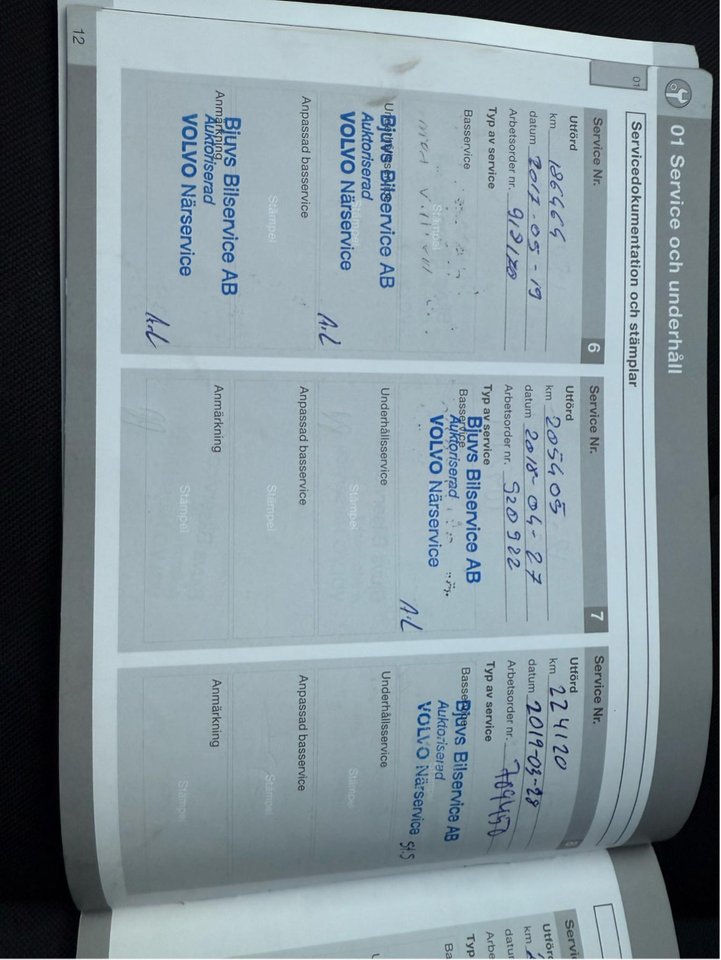 01 Service och underhåll
01
Servicedokumentation och stämplar
Service Nr. 6
Utförd
km 186464
datum 2017-05-19
Arbetsorder nr.
Typ av service
Basservice
Stämpel
Underhållsservice
Bjuvs Bilservice AB
Auktoriserad
VOLVO Närservice
Stämpel
A.L
Anpassad basservice
Stämpel
Anmärkning
Bjuvs Bilservice AB
Auktoriserad
VOLVO Närservice
A.L
Service Nr. 7
Utförd
km 205405
datum 2018-04-27
Arbetsorder nr. 920922
Typ av service
Basservice
Bjuvs Bilservice AB
Auktoriserad
VOLVO Närservice
A.L
Underhållsservice
Stämpel
Anpassad basservice
Stämpel
Anmärkning
Stämpel
Service Nr. 8
Utförd
km 224120
datum 2019-03-28
Arbetsorder nr.
Typ av service
Basservice
Bjuvs Bilservice AB
Auktoriserad
VOLVO Närservice
St.S
Underhållsservice
Stämpel
Anpassad basservice
Stämpel
Anmärkning
Stämpel
12
Service
Utförd
km
datu
Arbe
Typ
Ba